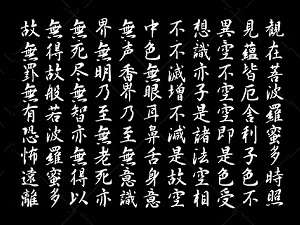 觀在菩波羅蜜多時照
見蘊皆厄舍利子色不
異空不空空即是色受
想識亦子是諸法空相
不不滅增不減是故空
中色無眼耳鼻舌身意
無声香界乃至無意識
界無明乃至無老死亦
無死尽無智亦無得以
無得故般若波羅蜜多
故無罣無有恐怖遠離